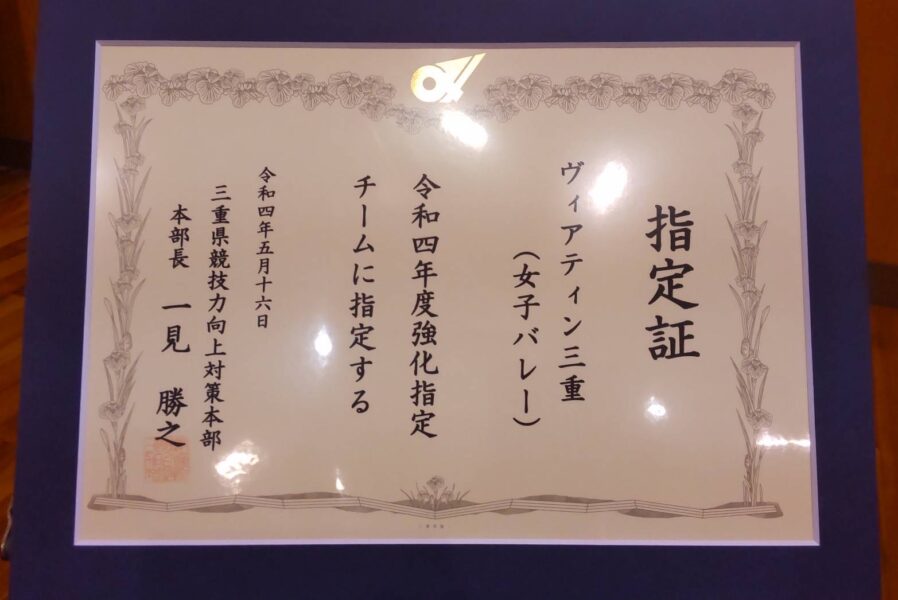 指定証
ヴィアティン三重
(女子バレー)
令和四年度強化指定
チームに指定する
令和四年五月十六日
三重県競技力向上対策本部
本部長 一見 勝之